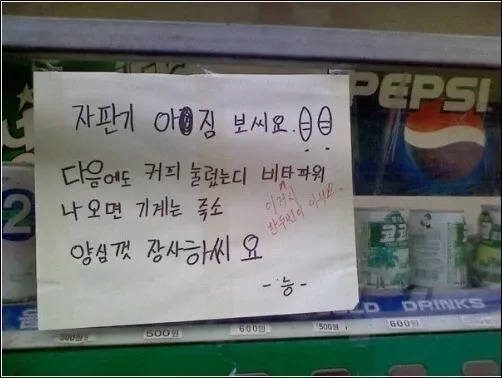 PEPSI
자판기 아짐 보씨요.
다음에도 커피 눌렀는디 비타파워
나오면 기계는 죽소
이러시
한두번이 아니요.
양심껏 장사하씨요
-능-
코코
COLD DRINKS
500원
500원
600원
500원
600원